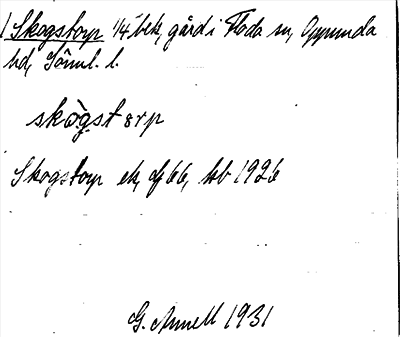 1 Skogstorp 1/4 bek, gård i Floda sn, Oppunda
hd, Söml. l.
skògstorp
Skogstorp ek, dj 66, kb 1926
G. Annell 1931